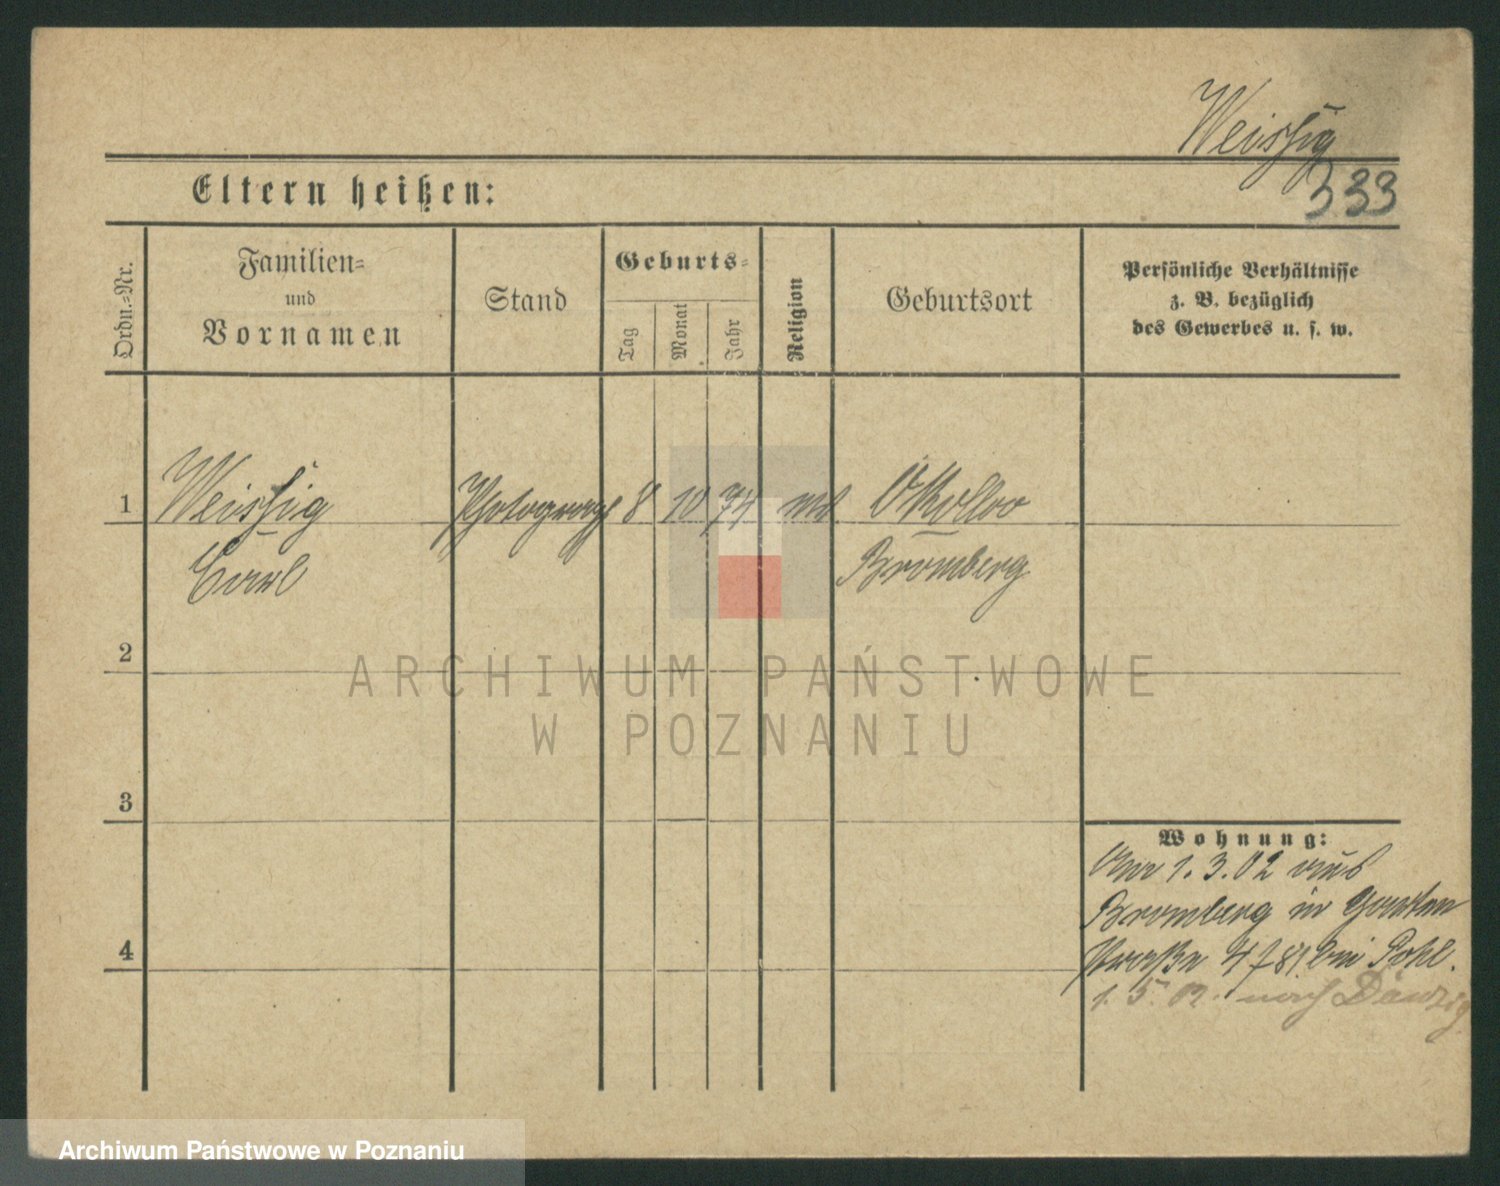 Weissig
333
Eltern heißen:
Ordn.-Nr.
Familien-
und
Vornamen
Stand
Geburts-
Tag
Monat
Jahr
Religion
Geburtsort
Persönliche Verhältnisse
z. B. bezüglich
des Gewerbes u. s. w.
1 Weissig Photograph 8 10 74
Carl Bromberg
2
ARCHIWUM PAŃSTWOWE
W POZNANIU
3
Wohnung:
Am 1. 3. 02 aus
Bromberg in Garten
straße 4 bei Pohl.
4
1. 5. 02. nach Danzig
Archiwum Państwowe w Poznaniu